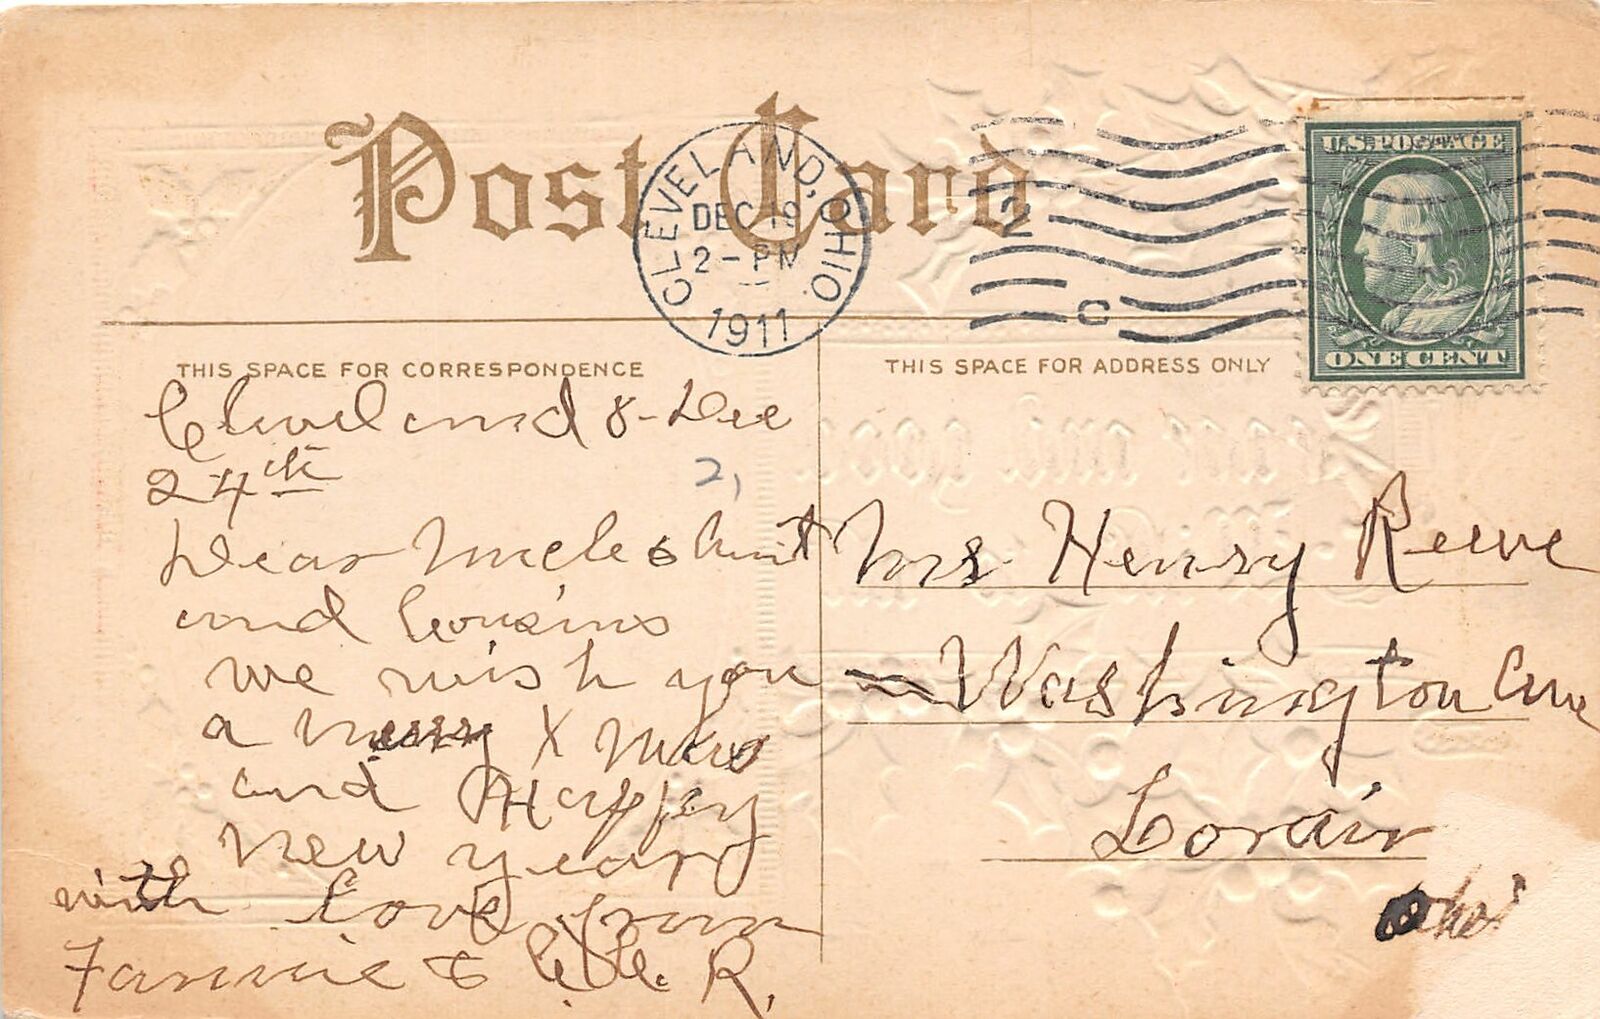 Post Card
CLEVELAND, OHIO.
DEC 19
2 - PM
1911
2
C
U.S. POSTAGE
ONE CENT
THIS SPACE FOR CORRESPONDENCE
THIS SPACE FOR ADDRESS ONLY
Cleveland 8 - Dec
24th
2,
Dear Uncle & Aunt
and Cousins
we wish you
a merry X Mas
and Happy
new year
with Love from
Fannie & C. R.
Mrs Henry Reeve
Washington Ave
Lorain
Ohio